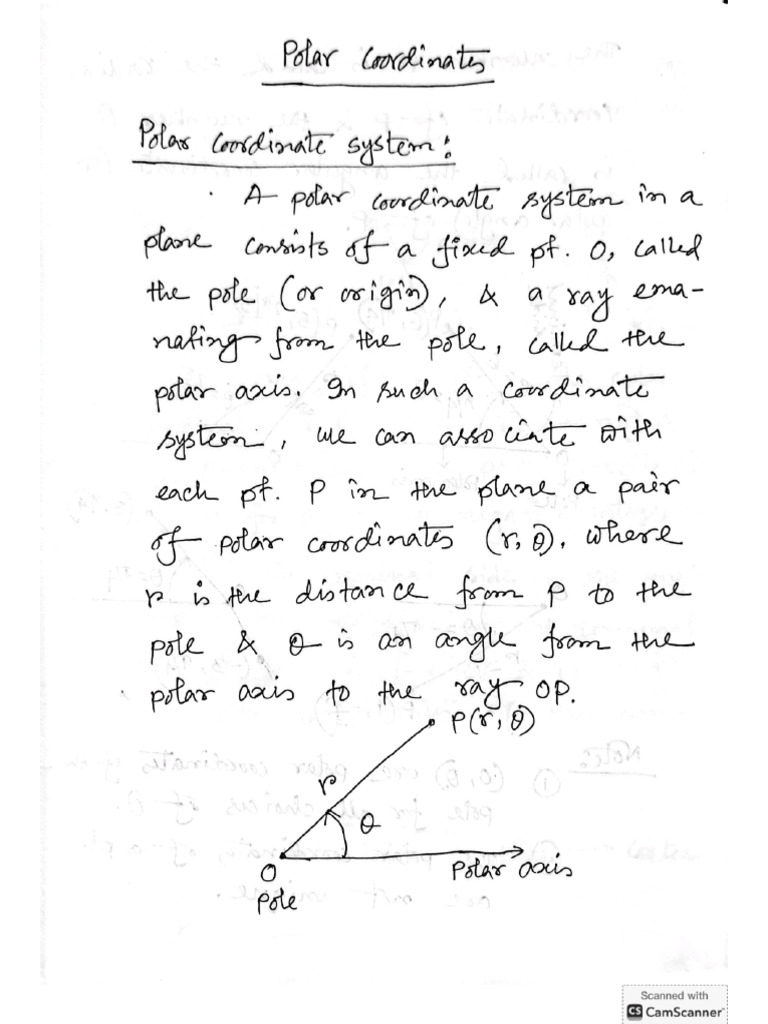 Polar Coordinates
Polar coordinate system:
A polar coordinate system in a
plane consists of a fixed pt. O, called
the pole (or origin), & a ray ema-
nating from the pole, called the
polar axis. In such a coordinate
system, we can associate with
each pt. P in the plane a pair
of polar coordinates (r, θ), where
r is the distance from P to the
pole & θ is an angle from the
polar axis to the ray OP.
P(r, θ)
r
θ
O
Pole
Polar axis
Scanned with
CS CamScanner